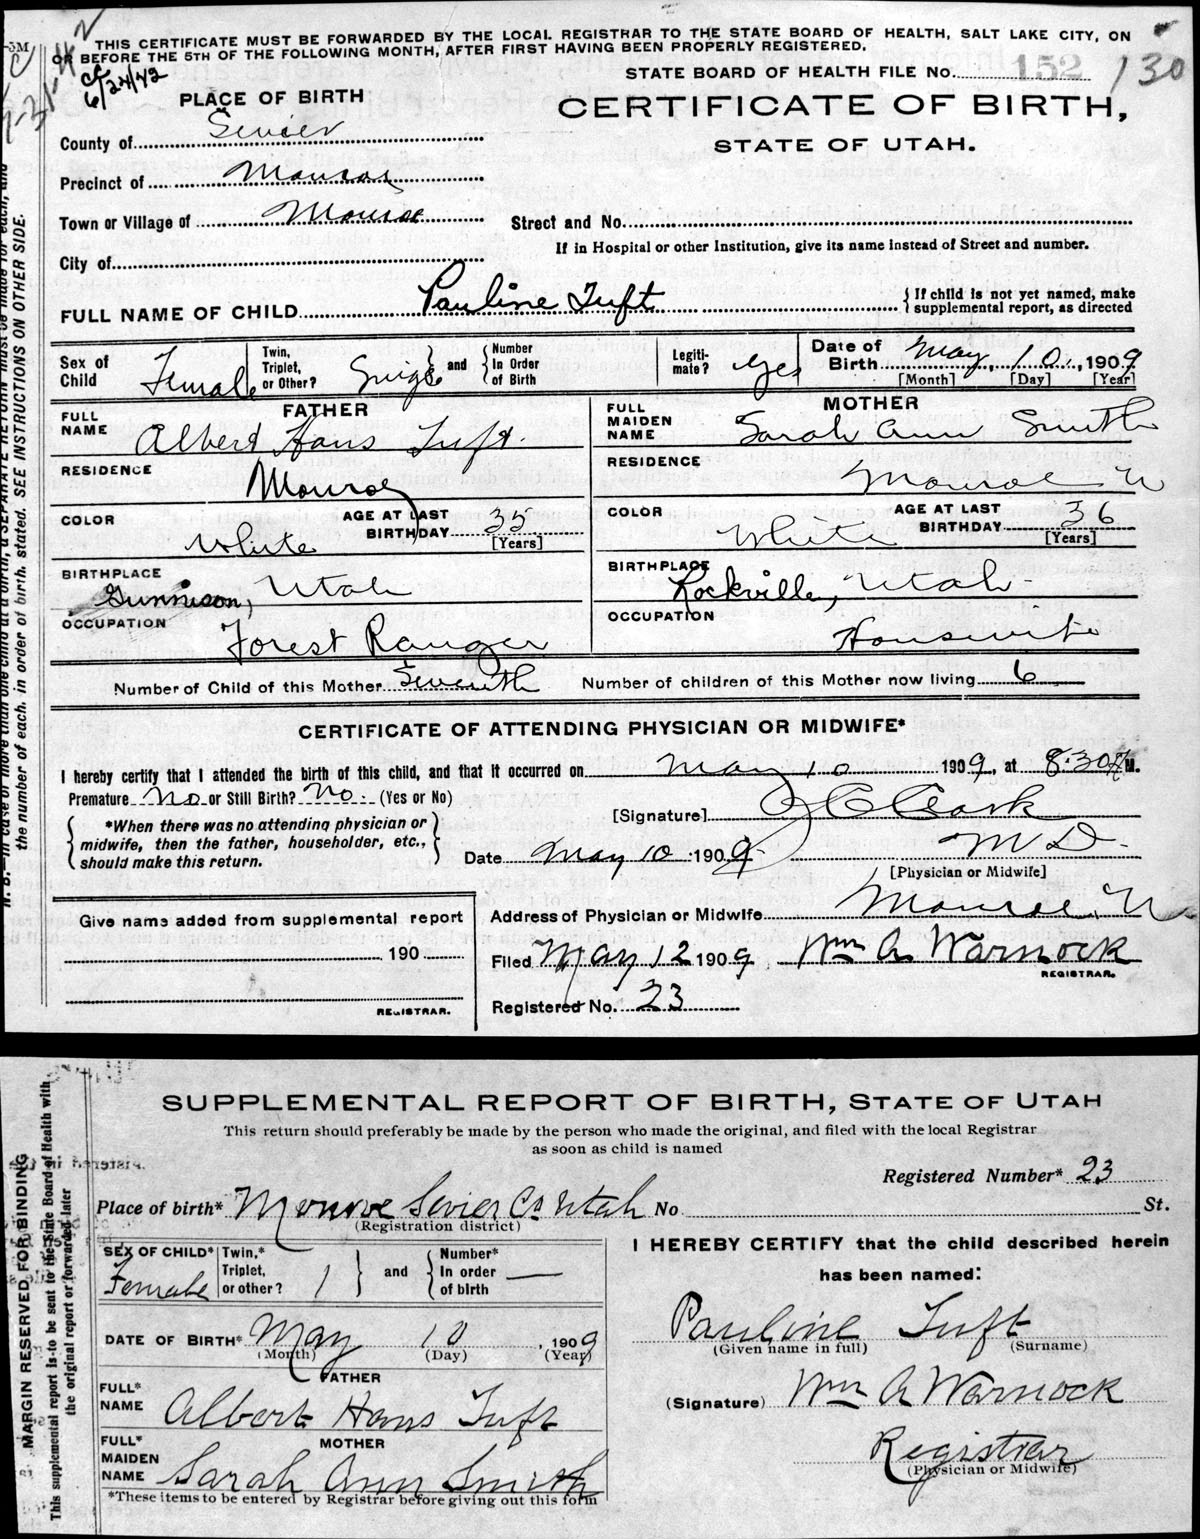 THIS CERTIFICATE MUST BE FORWARDED BY THE LOCAL REGISTRAR TO THE STATE BOARD OF HEALTH, SALT LAKE CITY, ON
OR BEFORE THE 5TH OF THE FOLLOWING MONTH, AFTER FIRST HAVING BEEN PROPERLY REGISTERED.
6/24/42
STATE BOARD OF HEALTH FILE No. 152 130
PLACE OF BIRTH
CERTIFICATE OF BIRTH,
STATE OF UTAH.
County of Sevier
Precinct of Monroe
Town or Village of Monroe
Street and No.
If in Hospital or other Institution, give its name instead of Street and number.
City of
FULL NAME OF CHILD Pauline Tuft
If child is not yet named, make
supplemental report, as directed
Sex of Child Female
Twin, Triplet, or Other? Single
and Number In Order of Birth
Legiti-mate? Yes
Date of Birth May, 10, 1909
[Month] [Day] [Year]
FATHER
FULL NAME Albert Hans Tuft.
RESIDENCE Monroe
COLOR White
AGE AT LAST BIRTHDAY 35 [Years]
BIRTHPLACE Gunnison, Utah
OCCUPATION Forest Ranger
MOTHER
FULL MAIDEN NAME Sarah Ann Smith
RESIDENCE Monroe U
COLOR White
AGE AT LAST BIRTHDAY 36 [Years]
BIRTHPLACE Rockville, Utah
OCCUPATION Housewife
Number of Child of this Mother Seventh Number of children of this Mother now living 6
CERTIFICATE OF ATTENDING PHYSICIAN OR MIDWIFE*
I hereby certify that I attended the birth of this child, and that it occurred on May 10 1909, at 8:30 A M.
Premature No or Still Birth? No. (Yes or No)
[Signature]
*When there was no attending physician or
midwife, then the father, householder, etc.,
should make this return.
Date May 10 1909. M D.
[Physician or Midwife]
Address of Physician or Midwife Monroe, U
Give name added from supplemental report
190
REGISTRAR.
Filed May 12 1909, Wm A Warnock
REGISTRAR.
Registered No. 23
the number of each, in order of birth, stated. SEE INSTRUCTIONS ON OTHER SIDE.
SUPPLEMENTAL REPORT OF BIRTH, STATE OF UTAH
This return should preferably be made by the person who made the original, and filed with the local Registrar
as soon as child is named
Registered Number* 23
Place of birth* Monroe Sevier Co Utah No St.
(Registration district)
SEX OF CHILD* Female
Twin,* Triplet, or other? 1
and Number* In order of birth —
DATE OF BIRTH* May 10, 1909
(Month) (Day) (Year)
FATHER
FULL* NAME Albert Hans Tuft
MOTHER
FULL* MAIDEN NAME Sarah Ann Smith
*These items to be entered by Registrar before giving out this form
I HEREBY CERTIFY that the child described herein
has been named:
Pauline Tuft
(Given name in full) (Surname)
(Signature) Wm A Warnock
Registrar
(Physician or Midwife)
MARGIN RESERVED FOR BINDING
This supplemental report is to be sent to the State Board of Health with
the original report or forwarded later